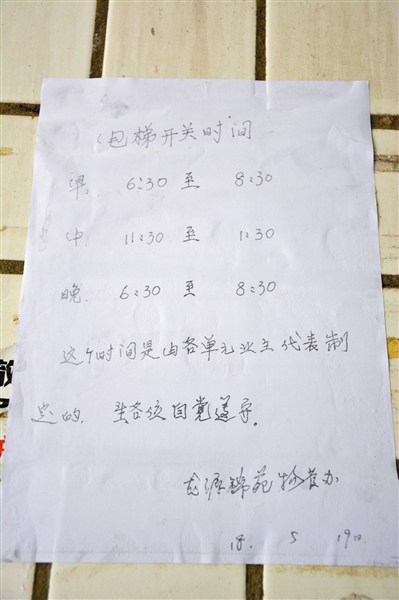 电梯开关时间
早. 6:30 至 8:30
中. 11:30 至 1:30
晚. 6:30 至 8:30
这个时间是由各单元业主代表制
定的. 望各位自觉遵守。
龙源锦苑物管办
18. 5